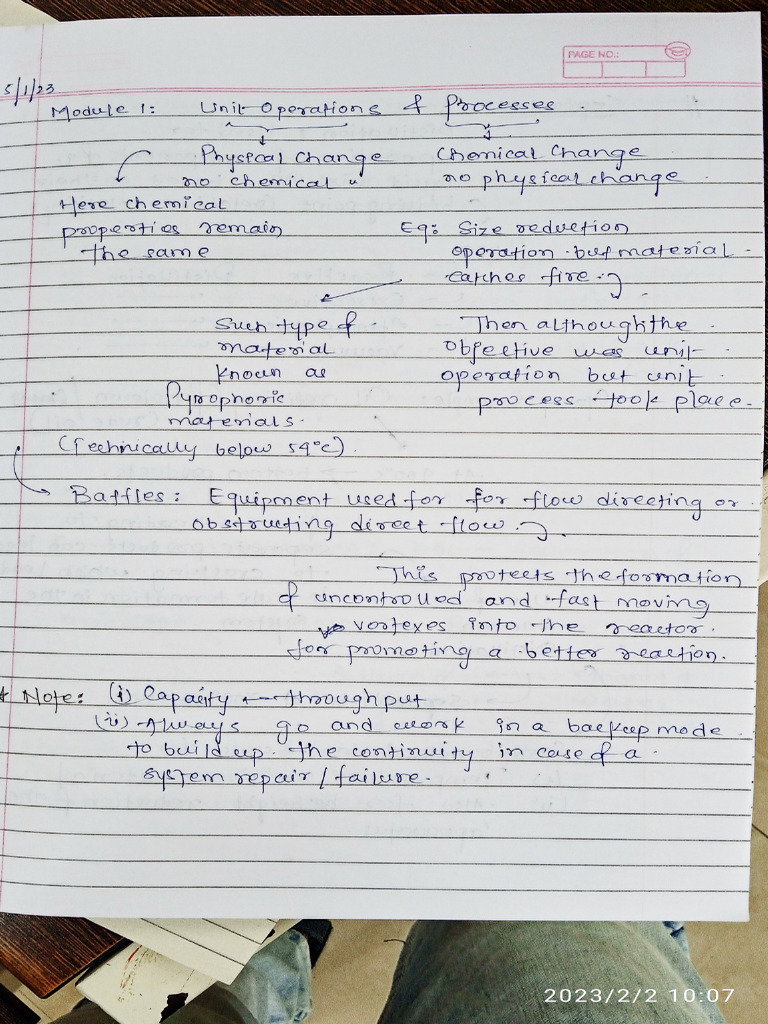 PAGE NO.:
5/1/23
Module 1: Unit Operations & Processes.
Physical Change
no chemical "
Chemical Change
no physical change
Here chemical
properties remain
the same
Eg: Size reduction
operation but material
catches fire.
Such type of
material
known as
Pyrophoric
materials.
(Technically below 54°C).
Then although the
objective was unit
operation but unit
process took place.
Baffles: Equipment used for for flow directing or
obstructing direct flow.
This protects the formation
of uncontrolled and fast moving
vortexes into the reactor.
for promoting a better reaction.
* Note: (i) Capacity ← throughput
(ii) Always go and work in a backup mode
to build up the continuity in case of a
system repair / failure.
2023/2/2 10:07